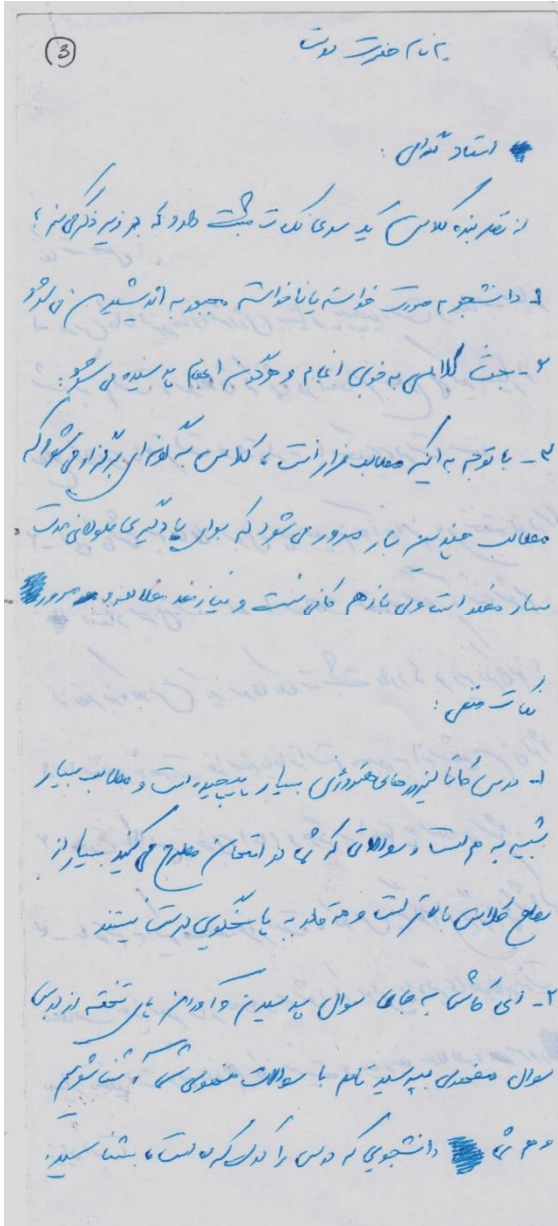 3
به نام حضرت دوست
استاد گرامی :
از نظر بنده کلاس یک سری نکات مثبت دارد که در زیر ذکر می‌کنم :
۱- دانشجو به صورت خواسته یا ناخواسته مجبور به اندیشیدن می‌شود
۲- بحث کلاسی به خوبی انجام و هرگونه ابهام پرسیده می‌شود :
۳- با توجه به اینکه مطالب فرار است ، کلاس به گونه‌ای برگزار می‌شود که
مطالب چندین بار مرور می‌شود که برای یادگیری طولانی مدت
بسیار مفید است ولی باز هم کافی نیست و نیازمند مطالعه و مرور
نکات منفی :
۱- درس کاتالیزورهای هتروژن بسیار پیچیده است و مطالب بسیار
شبیه به هم است و سوالاتی که شما در امتحان مطرح می‌کنید بسیار از
سطح کلاس بالاتر است و قادر به پاسخگویی درست نیستند
۲- ای کاش به جای سوال پرسیدن و آوردن پای تخته از درس
سوال مفهومی بپرسید تا هم با سوالات مفهومی شما آشنا شویم
و هم شما دانشجویی که درس را درک کرده است ، بشناسید .